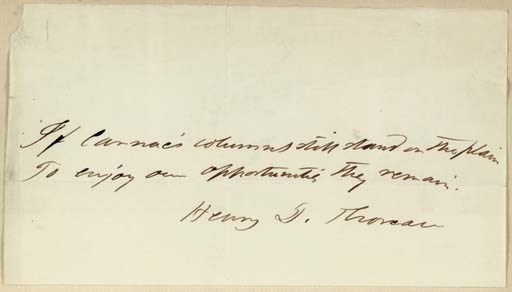 If Carnac's columns still stand on the plain
To enjoy our opportunities they remain.
Henry D. Thoreau